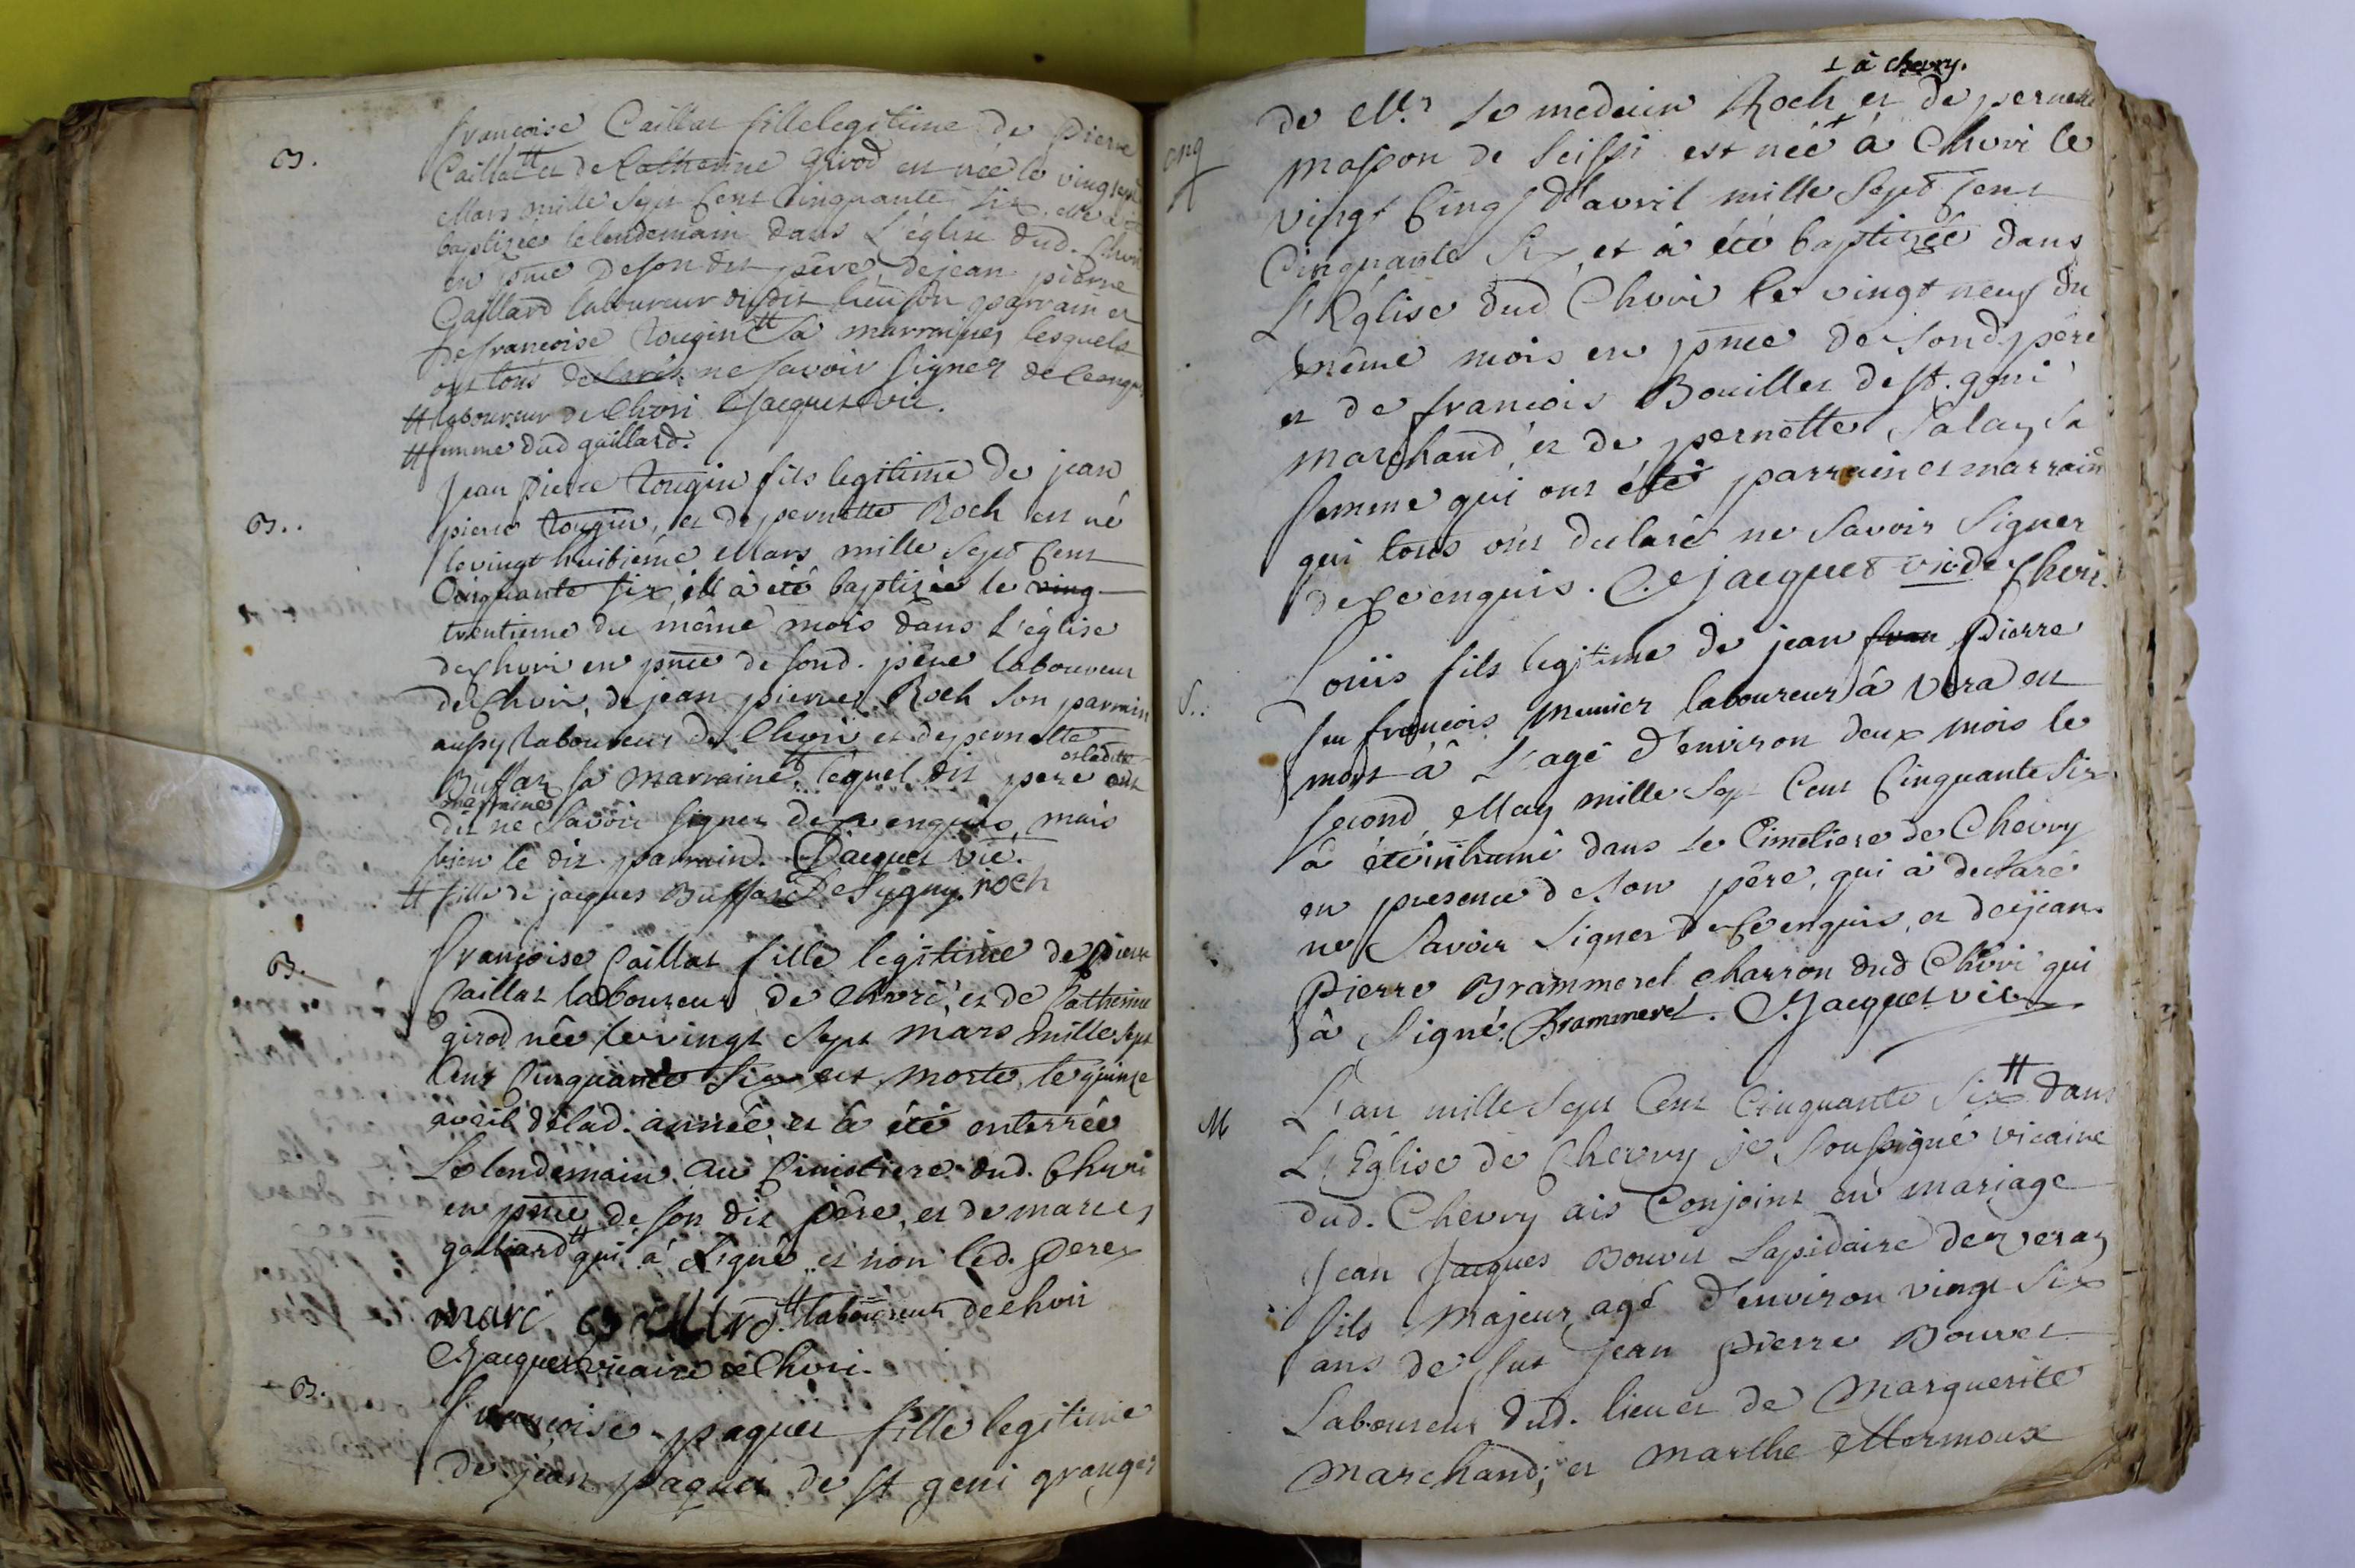 B.
françoise Caillat fille legitime de Pierre
Caillat # et de Catherine girod est née le vingt sept
Mars mille sept cent cinquante six, elle a été
baptizée le lendemain dans L'église dud. Chvri
en pnce de son dit père, de jean pierre
Gaillard laboureur dudit lieu son parrain et
de françoise tougin # sa marraine, lesquels
ont tous declarés ne savoir signer de ce enquis
# laboureur de Chvri Jacquet vic.
# femme dud gaillard.
B..
Jean Pierre tougin fils legitime de jean
pierre tougin, et de pernette Roch est né
le vingt huitiéme Mars mille sept cent
Cinquante six, ill à été baptizée le ving
trentieme du même mois dans L'église
de Chvri en pnce de sond. père laboureur
de Chvri, de jean pierre Roch son parrain
aussy laboureur de Chvri et de pernette
Buffar # sa marraine, lequel dit pere et ladite
marraine ont
dit ne savoir signer de ce enquis, mais
bien le dit parrain. Jacquet vic.
# fille de jacques Buffard de Sygny. roch
B.
françoise Caillat fille legitime de Pierre
Caillat laboureur de Chvri, et de Catherine
girod née le vingt sept mars mille sept
Cent Cinquante six est morte le quinze
avril de lad. année, et à été enterrée
Le lendemain au Cimistiere dud. Chvri
en pnce de son dit père, et de marc
galliard # qui à signé et non led. pere
marc # laboureur de chvri
Jacquet vicaire de Chvri.
B.
françoise paquet fille legitime
de jean paquet de st geni granger
+ à chevry.
de Mr. le medecin Roch et de pernette
masson de seissi est née + à Chvri le
vingt cinq d'avril mille sept cent
Cinquante six, et à été baptizée dans
L'Eglise dud Chvri le vingt neuf du
même mois en pnce de sond. père
et de francois Bouillet de st. geni
marchand et de pernette Salay sa
femme qui ont été parrain et marraine
qui tous ont declaré ne savoir signer
de ce enquis. Jacquet vic. de Chvri.
S..
Loüis fils legitime de jean fran Pierre
feu francois meunier laboureur à vera est
mort à L'age d'environ deux mois le
second May mille sept Cent Cinquante six
à été inhumé dans le Cimetiere de Chevry
en presence de son père, qui à declaré
ne savoir signer de ce enquis, et de jean
Pierre Brammerel charron dud Chvri qui
à signé. Brammerel. Jacquet vic.
M
L'an mille sept Cent Cinquante six # dans
L'Eglise de Chevry je soussigné vicaire
dud. Chevry ais Conjoint en mariage
Jean Jacques Bouvet Lapidaire de veraz
fils majeur agé d'environ vingt six
ans de fut jean Pierre Bouvet
Laboureur dud. lieu et de Marguerite
marchand; et marthe Mermoux